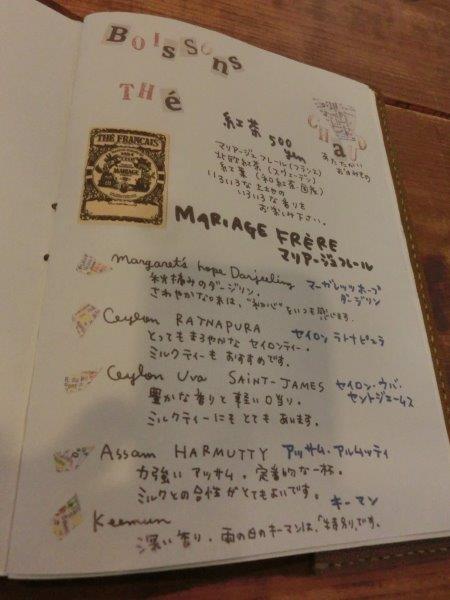 Boissons
THé
CHauD
紅茶 500
yen
あたたかい
お飲みもの
マリアージュフレール(フランス)
北欧紅茶(スウェーデン)
紅葉(和紅茶・国産)
いろいろな土地の
いろいろな香りを
お楽しみ下さい。
THE FRANCAIS
MARIAGE
MARIAGE FRÈRE
マリアージュフレール
Margaret's hope Darjeeling マーガレッツホープ
ダージリン
秋摘みのダージリン。
さわやかな味は、"初心"をいつも感じます。
Ceylon RATNAPURA セイロン ラトナピュラ
とってもまろやかな セイロンティー。
ミルクティーも おすすめです。
Ceylon Uva SAINT-JAMES セイロン・ウバ・
セントジェームス
豊かな香りと軽い口当り。
ミルクティーにも とても あいます。
Assam HARMUTTY アッサム・アルムッティ
力強い アッサム。定番的な一杯。
ミルクとの合性がとてもよいです。
Keemun キーマン
深い香り。雨の日のキーマンは、「特別」です。